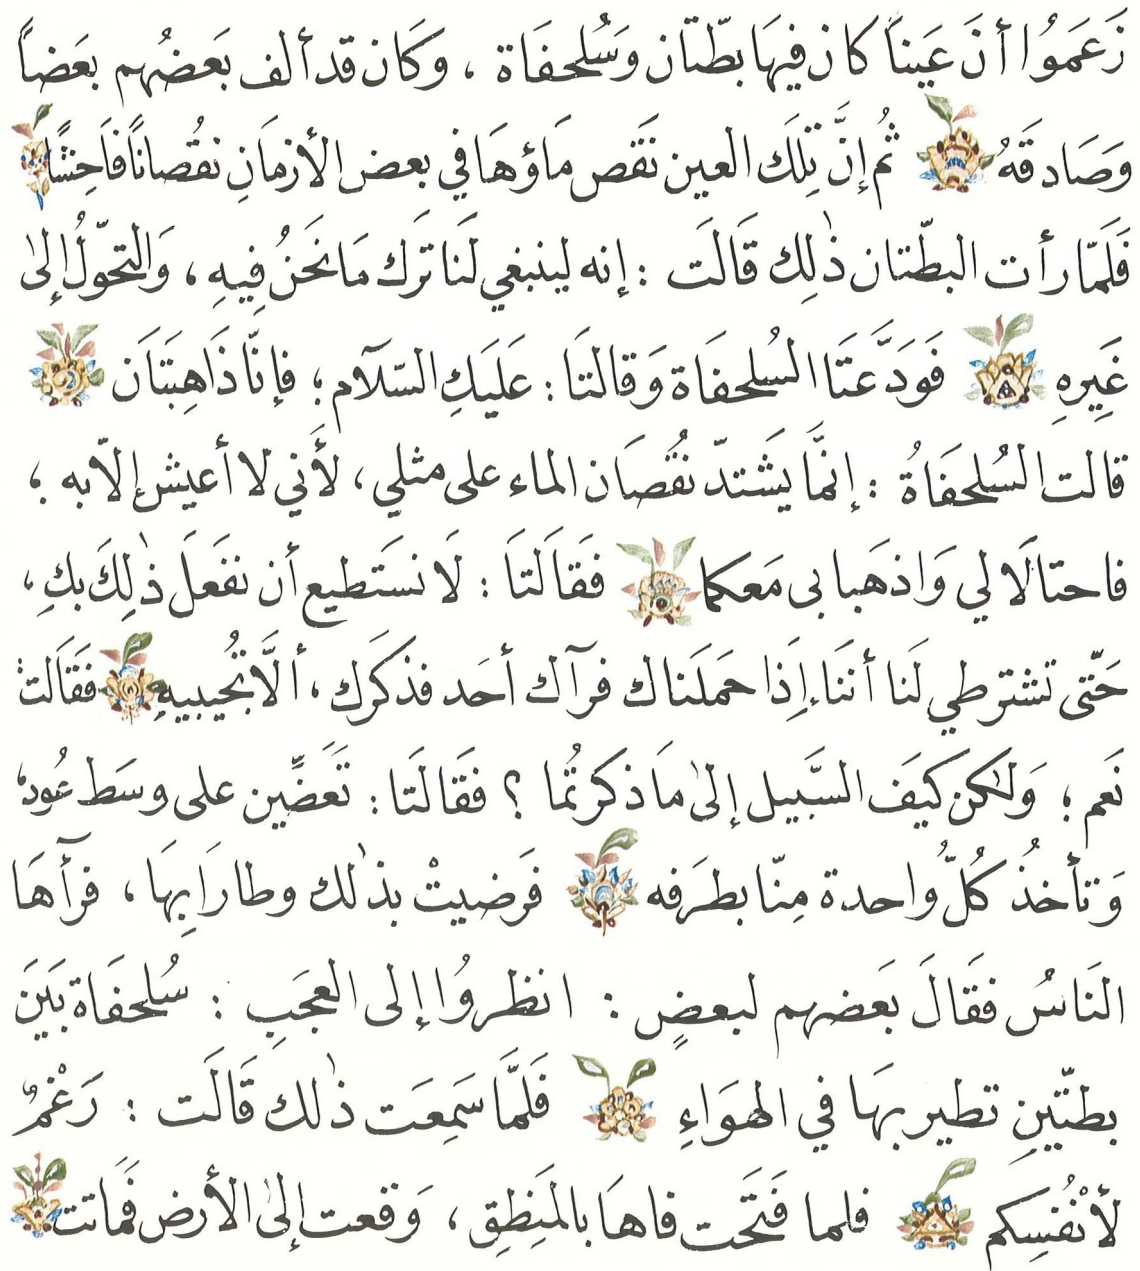 زَعَمُوا أنَ عَيناً كان فيهَا بطّتان وَسُلحفَاة ، وكَان قد ألف بَعضُهم بعَضاً
وصَادقَهُ ثُم إنَّ تِلكَ العين نَقَص مَاؤهَا في بعض الأزمَانِ نقُصانًا فَاحِشًا
فَلَمّا رأت البطّتان ذٰلِك قَالَت : إنه لينبغي لَنَا تَرَك مَا نَحَنُ فِيهِ ، وَالتحّولُ إلىٰ
غَيِرهِ فَوَدَّعتَا السُلحفَاة وَقالتَا : عَليَكِ السّلآم ؛ فإنّا ذَاهِبَتَاَن
قالت السُلحفَاةُ : إنمَّا يشَتدّ نقُصَان الماء على مثلي ، لأَني لا أعيش إلاّ به ؛
فاحتالَا لي وَاذهَبا بى مَعكما فقَالَتاَ : لَا نستَطيع أن نفَعلَ ذٰلِكَ بكِ ،
حَتّى تشترطي لَنا أننَاء إذَا حمَلَناك فرآك أحَد فذكَرك ، ألَّا تجُيبيهِ فقَاَلت
نَعم ؛ وَلٰكن كَيفَ السَّبيل إلىٰ مَا ذكرتُما ؟ فقَالَتا : تَعَضِّين على وسَط عُود
وَتأخذُ كُلُّ واحدة مِنّا بطرَفه فَرضيتْ بذٰلك وطارَا بِهَا ، فرآهَا
النَاسُ فقَالَ بَعضهم لبعضٍ : انظروُا إلى العجَبِ : سُلحفَاة بَينَ
بطّتَينِ تطير بهَا في الهوَاءِ فَلمَّا سَمِعَت ذٰلك قَالَت : رَغْمٌ
لأنْفُسِكم فلما فتَحَت فاهَا بالمنَطِقِ ، وَقعت إلىٰ الأرض فمَاتت